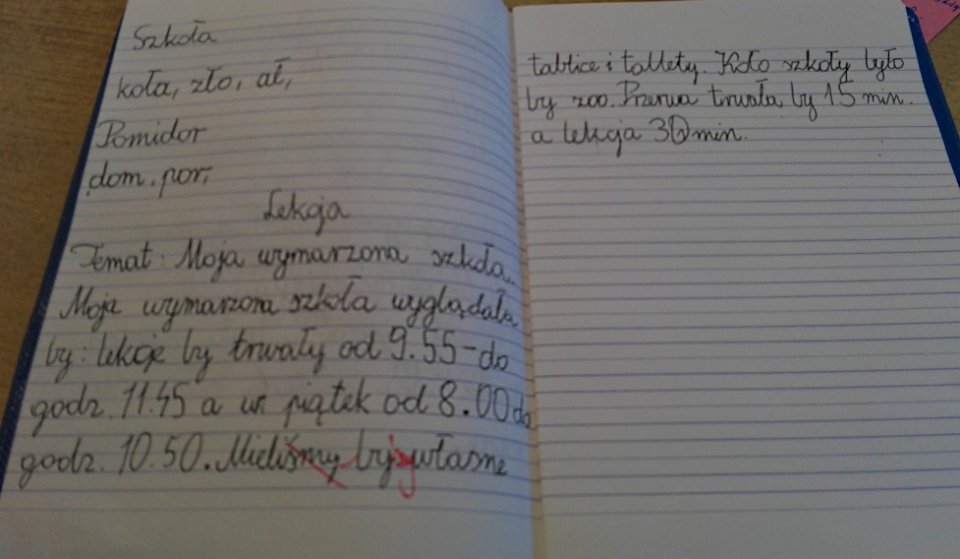 Szkoła
koła, zło, ał,
Pomidor
dom, por,
Lekcja
Temat: Moja wymarzona szkoła.
Moja wymarzona szkoła wyglądała
by: lekcje by trwały od 9.55-do
godz. 11.45 a w piątek od 8.00 do
godz. 10.50. Mieliśmy byśmy własne
tablice i tablety. Koło szkoły było
by zoo. Przerwa trwała by 15 min.
a lekcja 30 min.